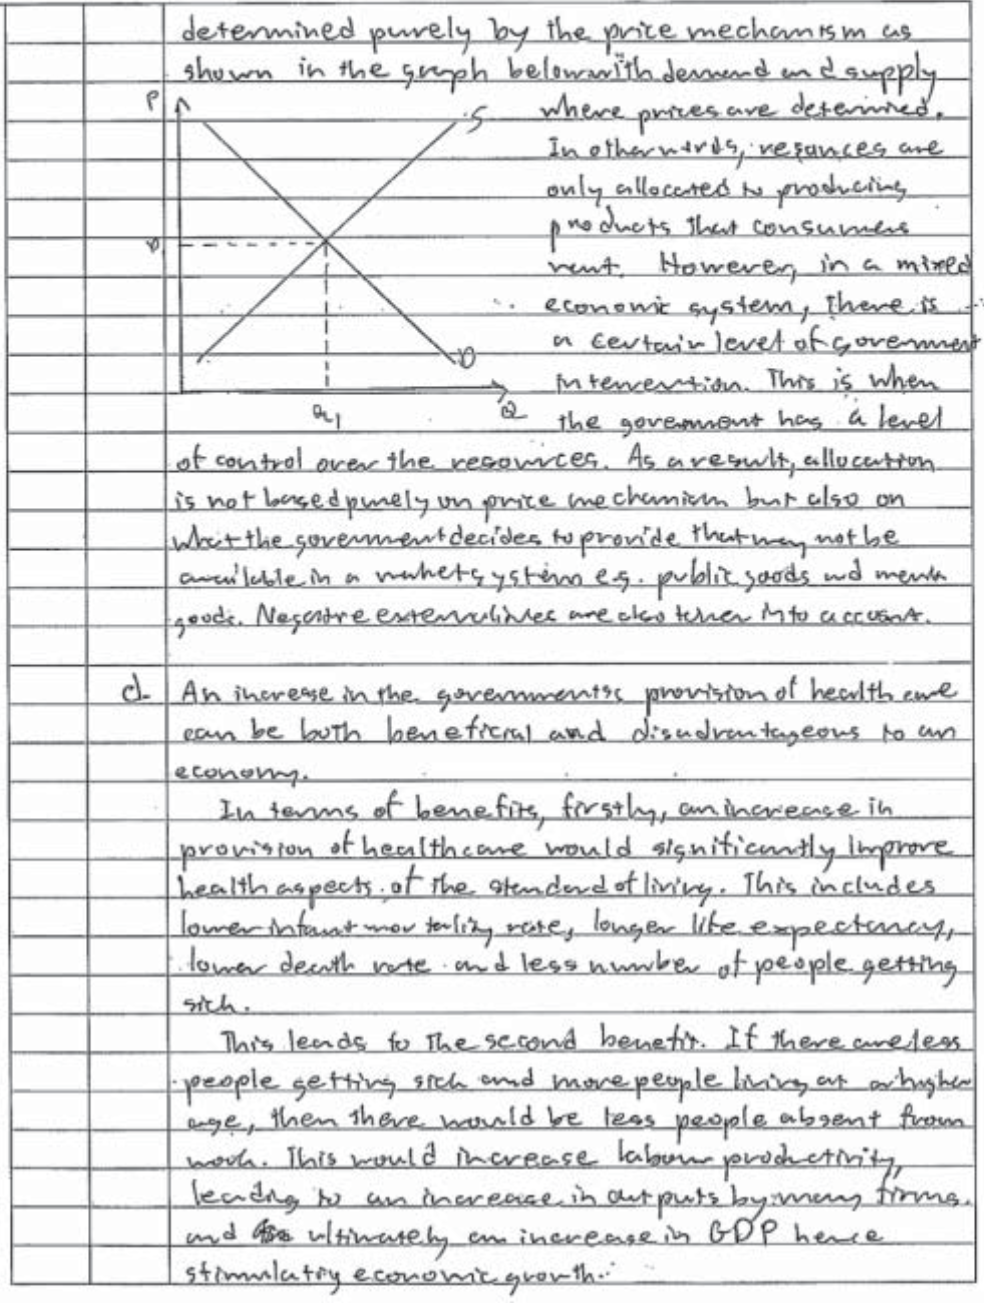 determined purely by the price mechanism as
shown in the graph below with demand and supply
P
S
where prices are determined.
In other words, resources are
only allocated to producing
products that consumers
P
want. However, in a mixed
economic system, there is
a certain level of government
D
intervention. This is when
Q1
Q
the government has a level
of control over the resources. As a result, allocation
is not based purely on price mechanism but also on
what the government decides to provide that may not be
available in a market system e.g. public goods and merit
goods. Negative externalities are also taken into account.
d. An increase in the governments provision of health care
can be both beneficial and disadvantageous to an
economy.
In terms of benefits, firstly, an increase in
provision of healthcare would significantly improve
health aspects of the standard of living. This includes
lower infant mortality rate, longer life expectancy,
lower death rate and less number of people getting
sick.
This leads to the second benefit. If there are less
people getting sick and more people living at a higher
age, then there would be less people absent from
work. This would increase labour productivity,
leading to an increase in outputs by many firms.
and ultimately an increase in GDP hence
stimulating economic growth.